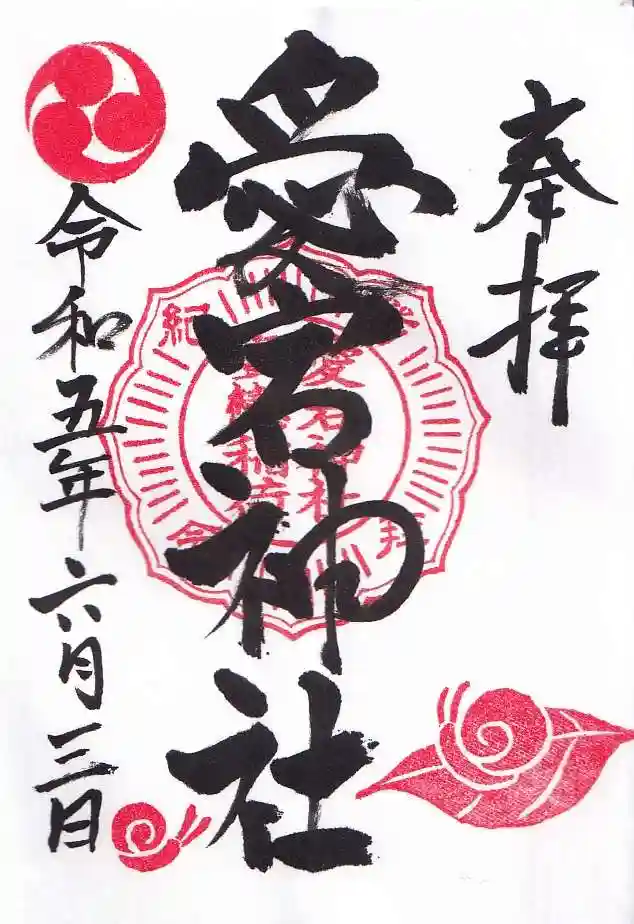 奉拝
愛宕神社
令和五年六月三日
愛宕神社
参拝紀念